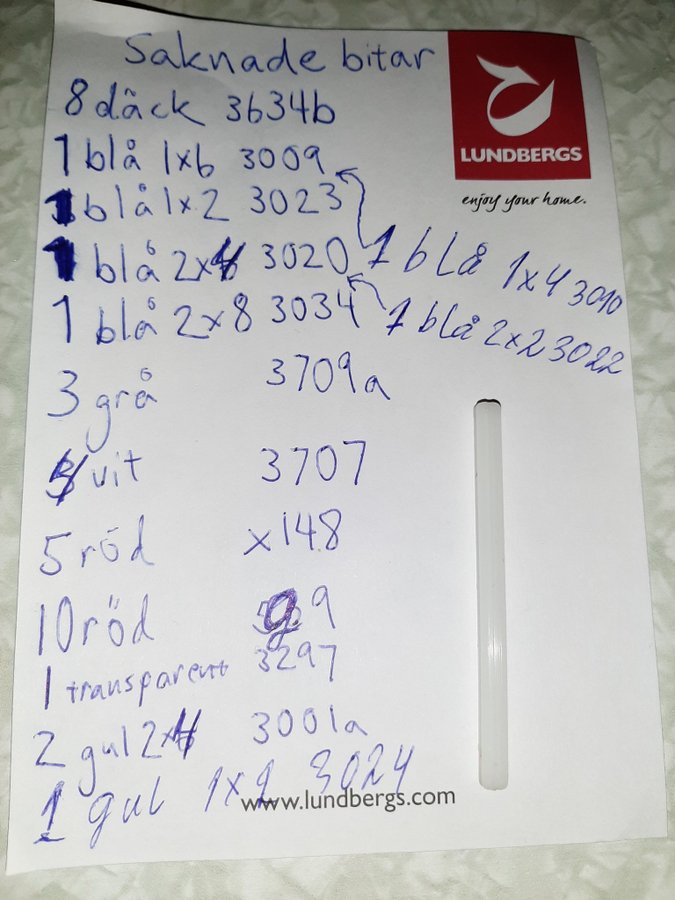 Saknade bitar
8 däck 3634b
1 blå 1x6 3009
1 blå 1x2 3023
1 blå 2x4 3020
1 blå 2x8 3034
1 blå 1x4 3010
1 blå 2x2 3022
3 grå 3709a
vit 3707
5 röd x148
10 röd 9
1 transparent 3297
2 gul 2x4 3001a
1 gul 1x1 3024
LUNDBERGS
enjoy your home.
www.lundbergs.com